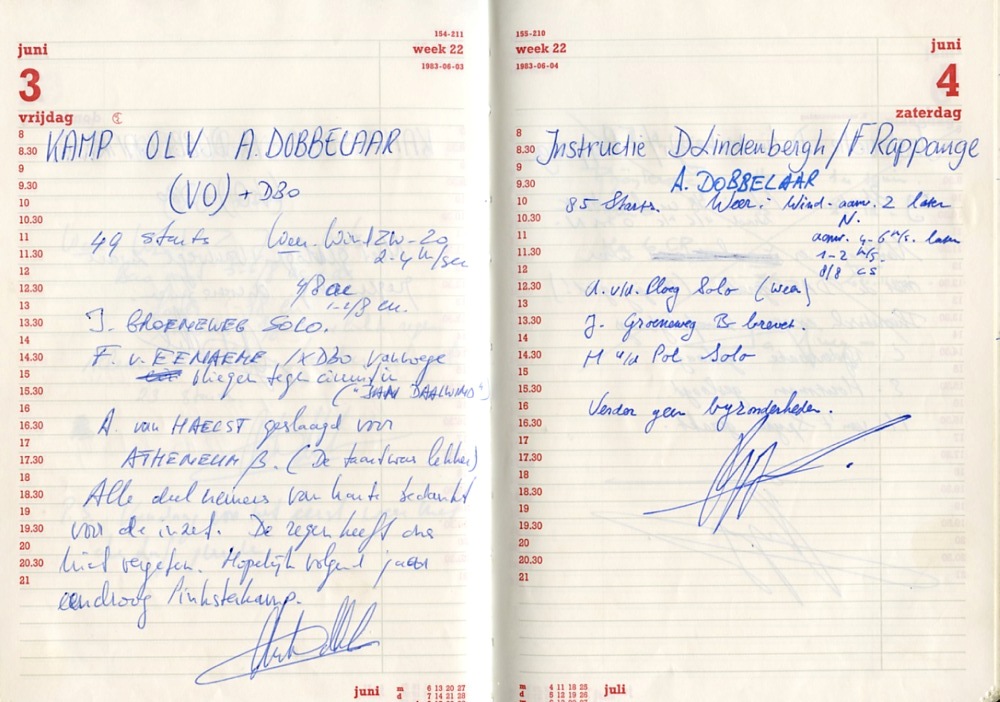 juni
154-211
week 22
1983-06-03
3
vrijdag
8
8.30
9
9.30
10
10.30
11
11.30
12
12.30
13
13.30
14
14.30
15
15.30
16
16.30
17
17.30
18
18.30
19
19.30
20
20.30
21
KAMP OLV A. DOBBELAAR
(VO) + DBO
49 starts Weer. Wind ZW-20
2-4 m/sec
4/8 ac
1-2/8 cu.
J. GROENEWEG SOLO.
F. v. EENAEME, 1x DBO vanwege
vliegen tegen
("JAN DAALWIND")
A. van HAELST geslaagd voor
ATHENEUM B. (De taart was lekker)
Alle deelnemers van harte bedankt
voor de inzet. De regen heeft ons
niet vergeten. Hopelijk volgend jaar
een droog Pinksterkamp.
juni
m 6 13 20 27
d 7 14 21 28
155-210
week 22
1983-06-04
juni
4
zaterdag
8
8.30
9
9.30
10
10.30
11
11.30
12
12.30
13
13.30
14
14.30
15
15.30
16
16.30
17
17.30
18
18.30
19
19.30
20
20.30
21
Instructie D Lindenbergh / F Rappange
A. DOBBELAAR
85 Starts. Weer: Wind - aanv. 2 later
N.
aanv. 4-6 m/s. later
1-2 m/s.
8/8 cs
A. v/d. Ploeg Solo (weer)
J. Groeneweg B brevet.
M v/d Pol Solo
Verder geen byzonderheden.
m 4 11 18 25
d 5 12 19 26
juli